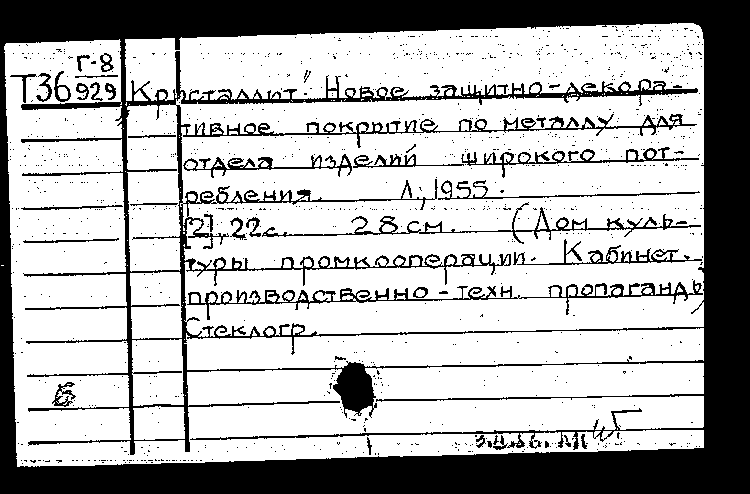 Г-8
Т36 929 Кристаллит". Новое защитно-декора-
тивное покрытие по металлу для
отдела изделий широкого пот-
ребления. Л., 1955.
[2], 22с. 28 см. (Дом куль-
туры промкооперации. Кабинет.
производственно-техн. пропаганды)
Стеклогр.
Б